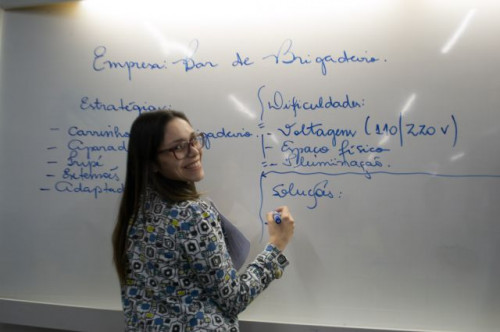 Empresa: Bar de Brigadeiro.
Estratégia:
- Carrinho
- 
- Extensões
- Adaptad
Dificuldades:
- Voltagem (110/220v)
- Espaço físico
- Iluminação.
Soluções: